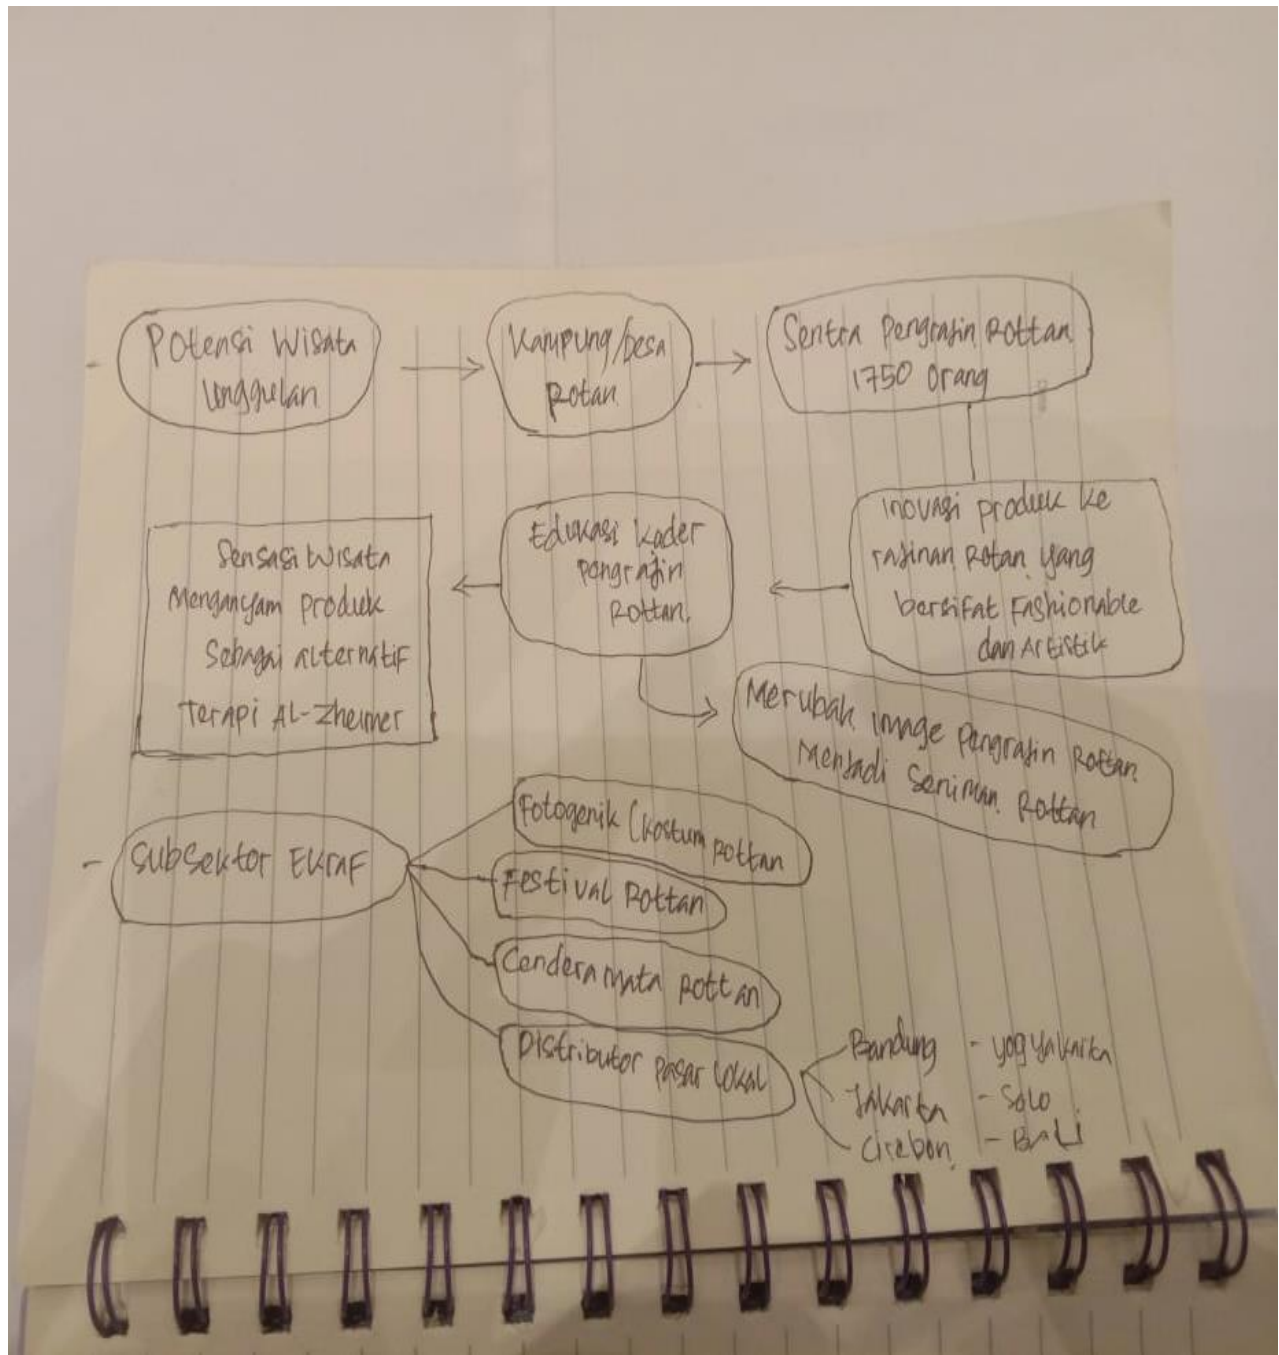 - Potensi Wisata
Unggulan
Kampung/Desa
Rotan
Sentra Pengrajin Rottan
1750 Orang
inovasi produk ke
rajinan Rotan yang
bersifat Fashionable
dan Artistik
Edukasi Kader
pengrajin
Rottan.
Sensasi Wisata
Menganyam Produk
Sebagai alternatif
Terapi Al-Zheimer
Merubah image Pengrajin Rottan
Menjadi Seniman Rottan
- Subsektor EKRAF
Fotogenik (Kostum Rottan
Festival Rottan
Cenderamata Rottan
Distributor Pasar Lokal
Bandung - Yogyakarta
Jakarta - Solo
Cirebon - Bali